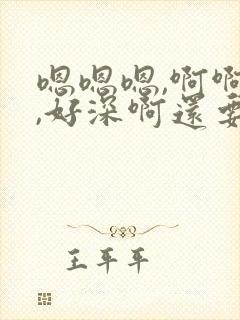 嗯嗯嗯,啊啊
,好深啊还要
王平平